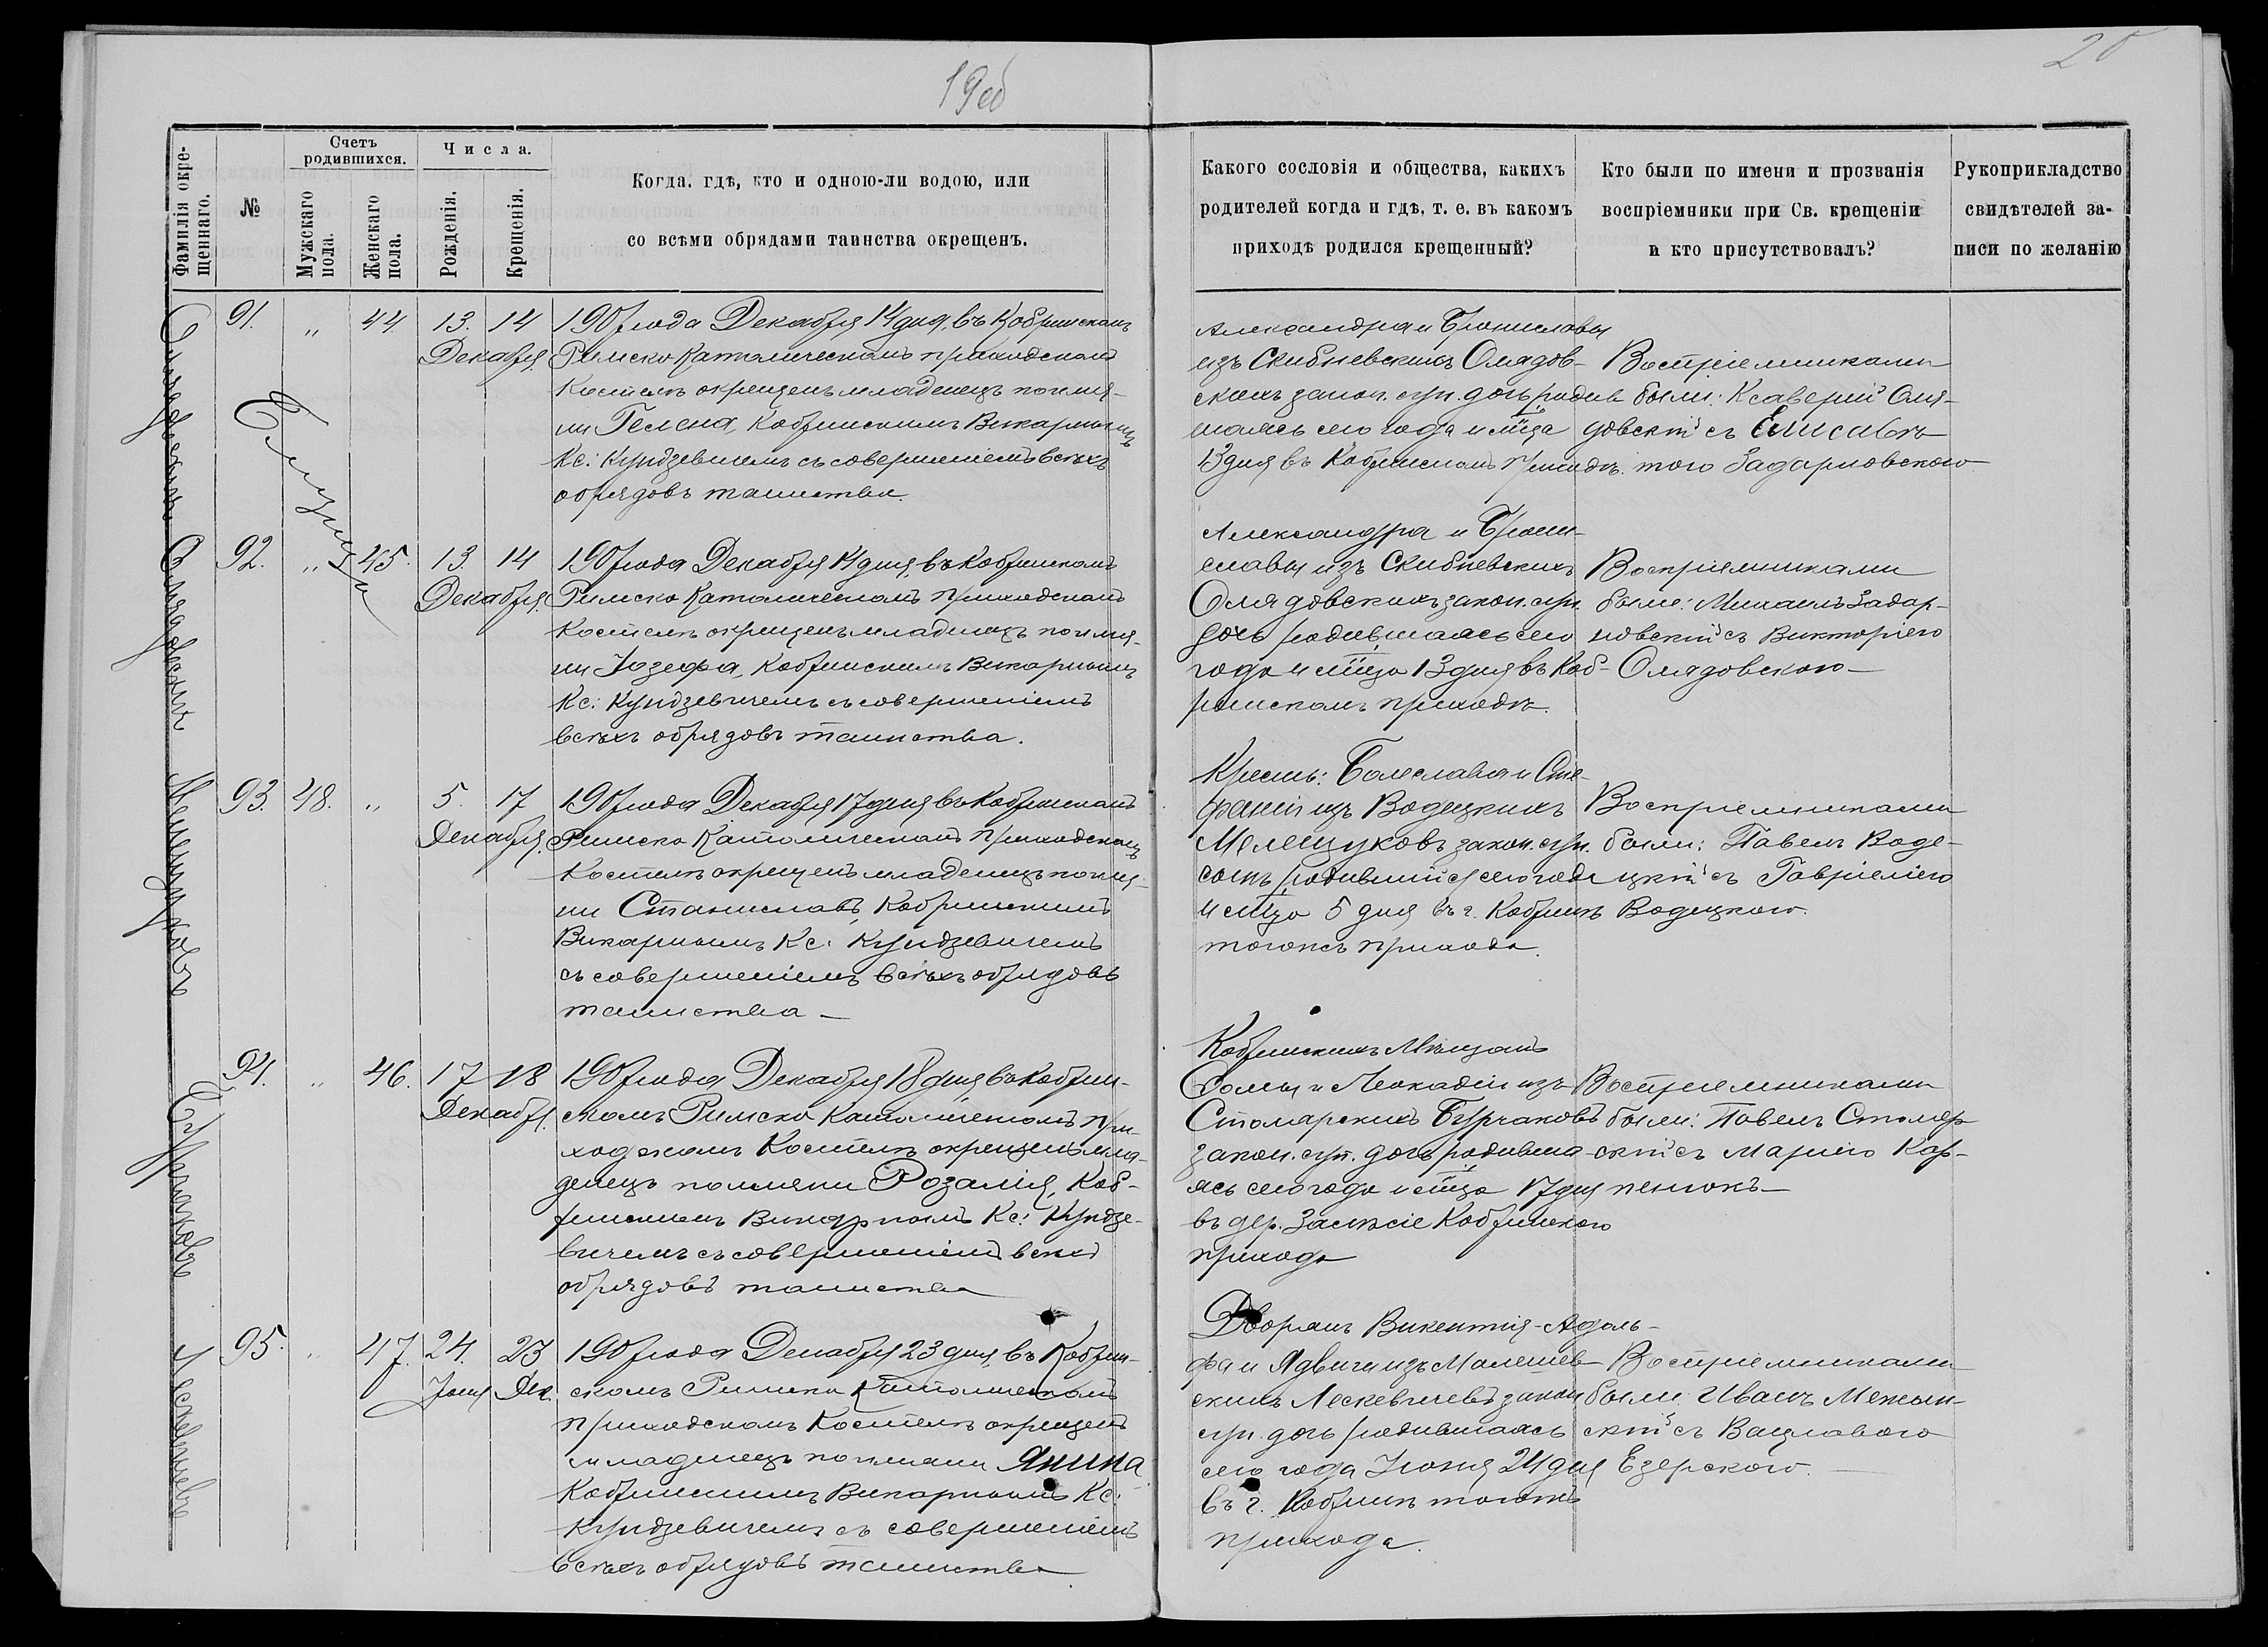 19об
20
Фамилія окрещеннаго.
№
Счетъ родившихся.
Мужскаго пола.
Женскаго пола.
Числа.
Рожденія.
Крещенія.
Когда, гдѣ, кто и одною-ли водою, или
со всѣми обрядами таинства окрещенъ.
Какого сословія и общества, какихъ
родителей когда и гдѣ, т. е. въ какомъ
приходѣ родился крещенный?
Кто были по имени и прозванія
воспріемники при Св. крещеніи
и кто присутствовалъ?
Рукоприкладство
свидѣтелей за-
писи по желанію
Близнята
91. " 44 13. 14
Декабря.
1907 года Декабря 14 дня, въ Кобринскомъ
Римско Католическомъ приходскомъ
Костелѣ окрещенъ младенецъ по име-
ни Гелена, Кобринскимъ Викарнымъ
Кс: Кундзевичемъ съ совершеніемъ всѣхъ
обрядовъ таинства.
Александра и Брониславы
изъ Скибневскихъ Олядов-
скихъ закон. суп. дочь родив
шаяся сего года и м-ца
13 дня въ Кобринскомъ приходѣ.
Воспріемниками
были: Ксаверій Оля-
довскій съ Елисавѣ-
тою Задарновскою
Олядовскихъ
92. " 45. 13. 14
Декабря.
1907 года Декабря 14 дня, въ Кобринскомъ
Римско Католическомъ приходскомъ
Костелѣ окрещенъ младенецъ по име-
ни Іозефа, Кобринскимъ Викарнымъ
Кс: Кундзевичемъ съ совершеніемъ
всѣхъ обрядовъ таинства.
Александра и Брони-
славы изъ Скибневскихъ
Олядовскихъ закон. суп.
дочь родившаяся сего
года и м-ца 13 дня въ Коб-
ринскомъ приходѣ.
Воспріемниками
были: Михаилъ Задар-
новскій съ Викторіею
Олядовскою
Мелещуковъ
93. 48. " 5. 17
Декабря.
1907 года Декабря 17 дня въ Кобринскомъ
Римско Католическомъ приходскомъ
Костелѣ окрещенъ младенецъ по име-
ни Станиславъ, Кобринскимъ
Викарнымъ Кс: Кундзевичемъ
съ совершеніемъ всѣхъ обрядовъ
таинства
Крест: Болеслава и Сте-
фаніи изъ Водецкихъ
Мелещуковъ закон. суп.
сынъ родившійся сего года
и м-ца 5 дня въ г. Кобринѣ
тогожъ прихода.
Воспріемниками
были: Павелъ Воде-
цкій съ Габріеліею
Водецкою.
Бурчаковъ
94. " 46. 17 18
Декабр.
1907 года Декабря 18 дня, въ Кобрин-
скомъ Римско Католическомъ при-
ходскомъ Костелѣ окрещенъ мла-
денецъ по имени Розалія, Коб-
ринскимъ Викарнымъ Кс: Кундзе-
вичемъ съ совершеніемъ всѣхъ
обрядовъ таинства
Кобринскихъ Мѣщанъ
Ѳомы и Леокадіи изъ
Столярскихъ Бурчаковъ
закон. суп. дочь родивша-
яся сего года и м-ца 17 дня
въ дер. Залѣсіе Кобринскаго
прихода
Воспріемниками
были: Павелъ Столяр
скій съ Маріею Кар-
пенюкъ
Лескевичевъ
95. " 47. 24. 23
Іюня Дек.
1907 года Декабря 23 дня, въ Кобрин-
скомъ Римско Католическомъ
приходскомъ Костелѣ окрещенъ
младенецъ по имени Янина
Кобринскимъ Викарнымъ Кс:
Кундзевичемъ съ совершеніемъ
всѣхъ обрядовъ таинства
Дворянъ Викентія-Адоль-
фа и Ядвиги изъ Малешев
скихъ Лескевичевъ закон
суп. дочь родившаяся
сего года Іюня 24 дня
въ г. Кобринѣ тогожъ
прихода.
Воспріемниками
были: Иванъ Межын-
скій съ Вацлавою
Езерскою.